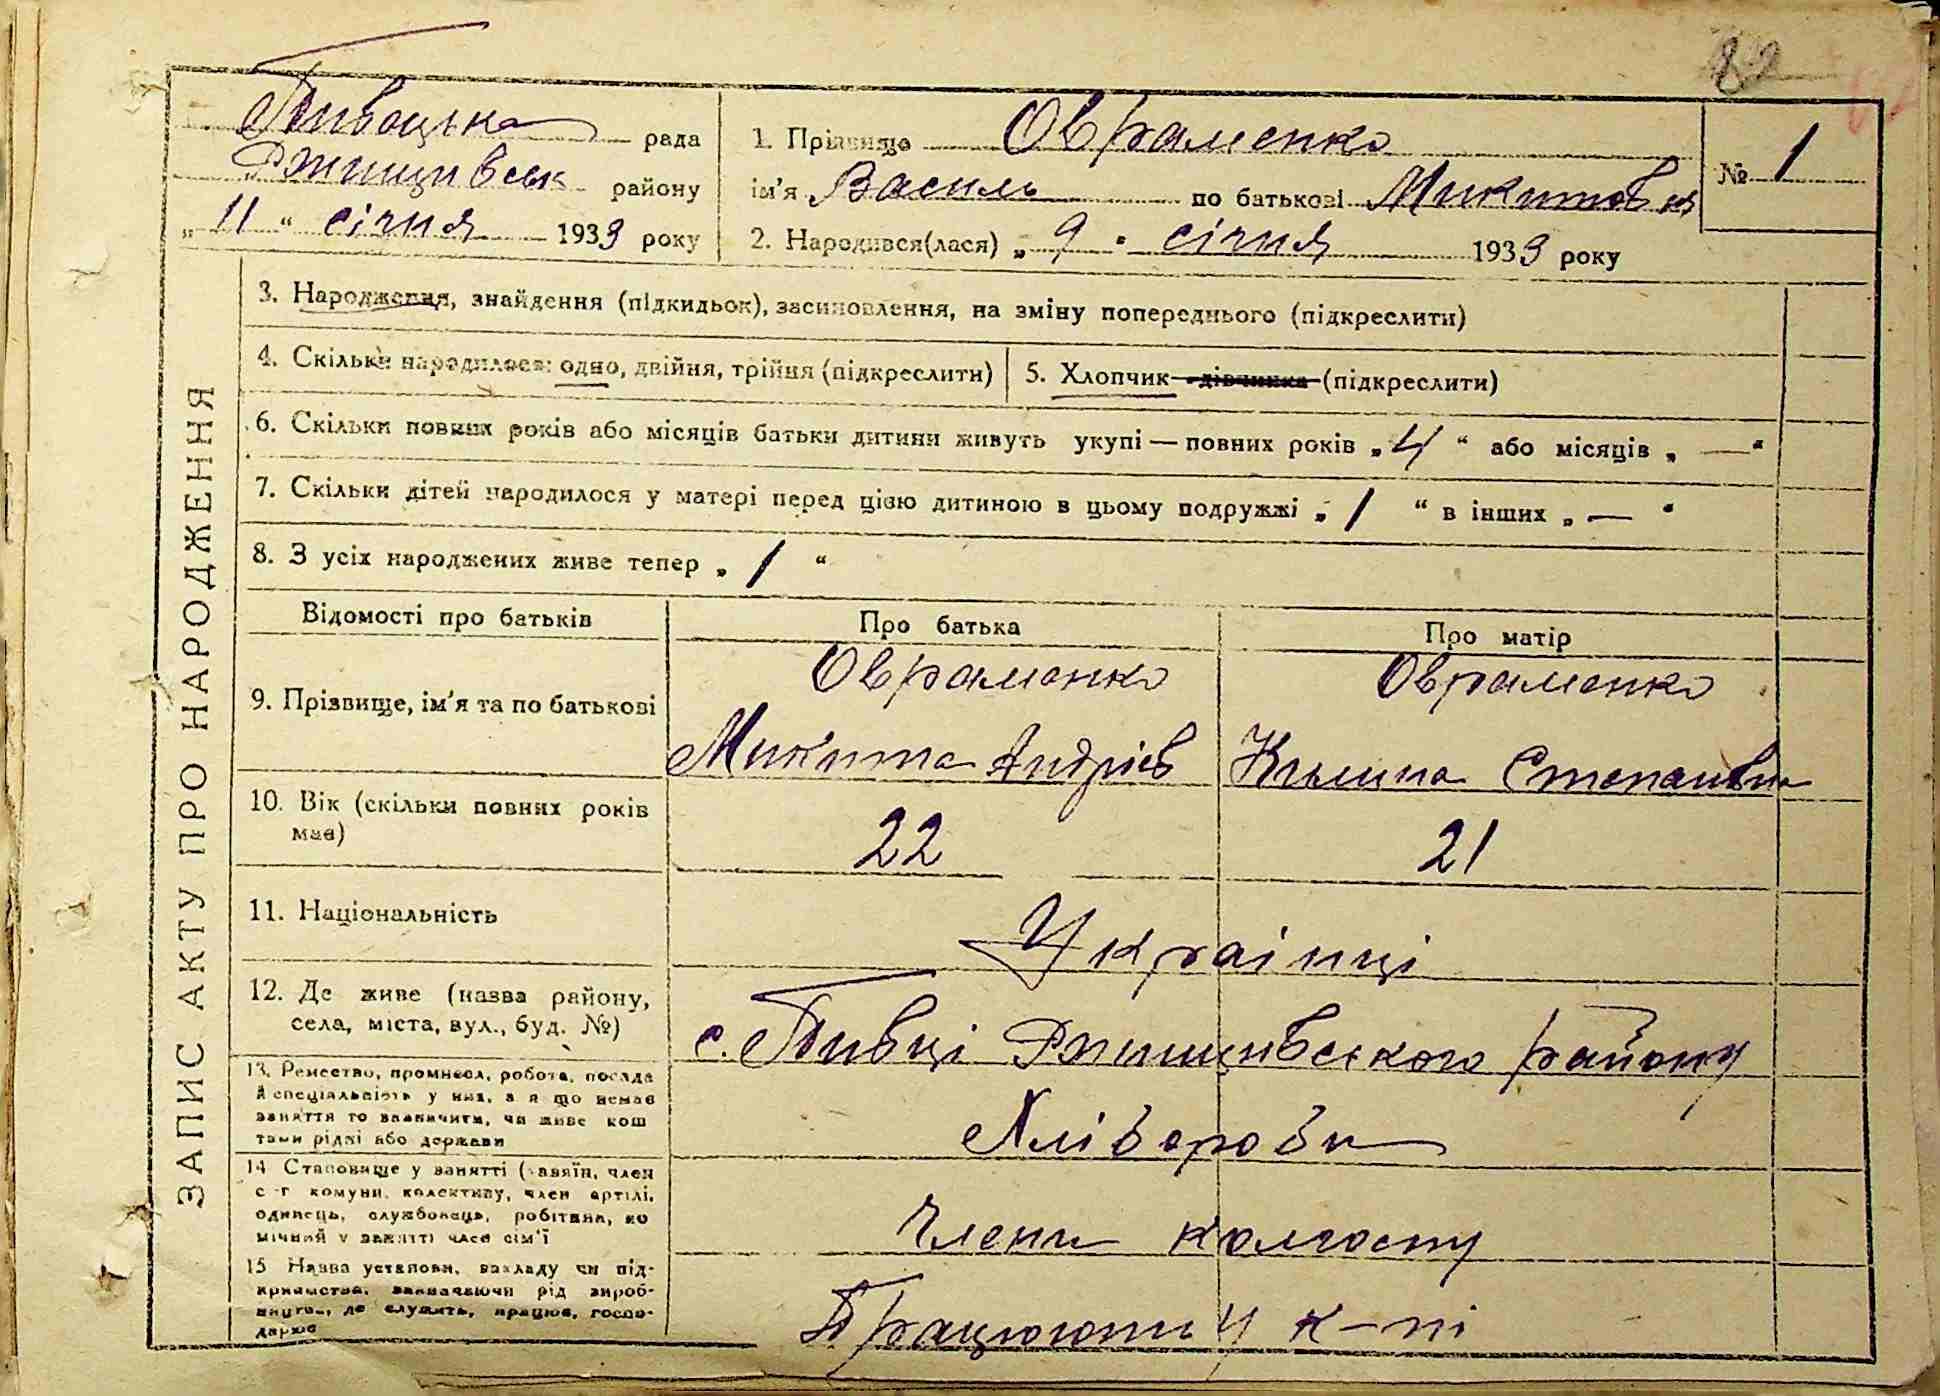 82
Пивоцька рада
Ржищивськ району
„11“ січня 1933 року
1. Прізвище Овраменко
ім'я Василь по батькові Микитов
2. Народився(лася) „9“ січня 1933 року
№ 1
ЗАПИС АКТУ ПРО НАРОДЖЕННЯ
3. Народження, знайдення (підкидьок), засиновлення, на зміну попереднього (підкреслити)
4. Скільки народилося: одно, двійня, трійня (підкреслити)
5. Хлопчик—дівчинка—(підкреслити)
6. Скільки повних років або місяців батьки дитини живуть укупі—повних років „4“ або місяців „—“
7. Скільки дітей народилося у матері перед цією дитиною в цьому подружжі „1“ в інших „—“
8. З усіх народжених живе тепер „1“
Відомості про батьків
Про батька
Про матір
9. Прізвище, ім'я та по батькові
Овраменко
Микита Андріев
Овраменко
Килина Степанівна
10. Вік (скільки повних років
має)
22
21
11. Національність
Українці
12. Де живе (назва району,
села, міста, вул., буд. №)
с. Пивці Ржищивського району
13. Ремество, промисел, робота, посада
й спеціальність у них, а якщо немає
заняття то зазначити, чи живе кош
тами рідні або держави
Хлібороби
14 Становище у занятті (хазяїн, член
с-г комуни, колективу, член артілі,
одинець, службовець, робітник, по
мічний у занятті член сім'ї
Члени колгоспу
15 Назва установи, закладу чи під-
приємства, зазначаючи рід вироб-
ництва, де служить, працює, госпо-
дарює
Працюють у к-пі